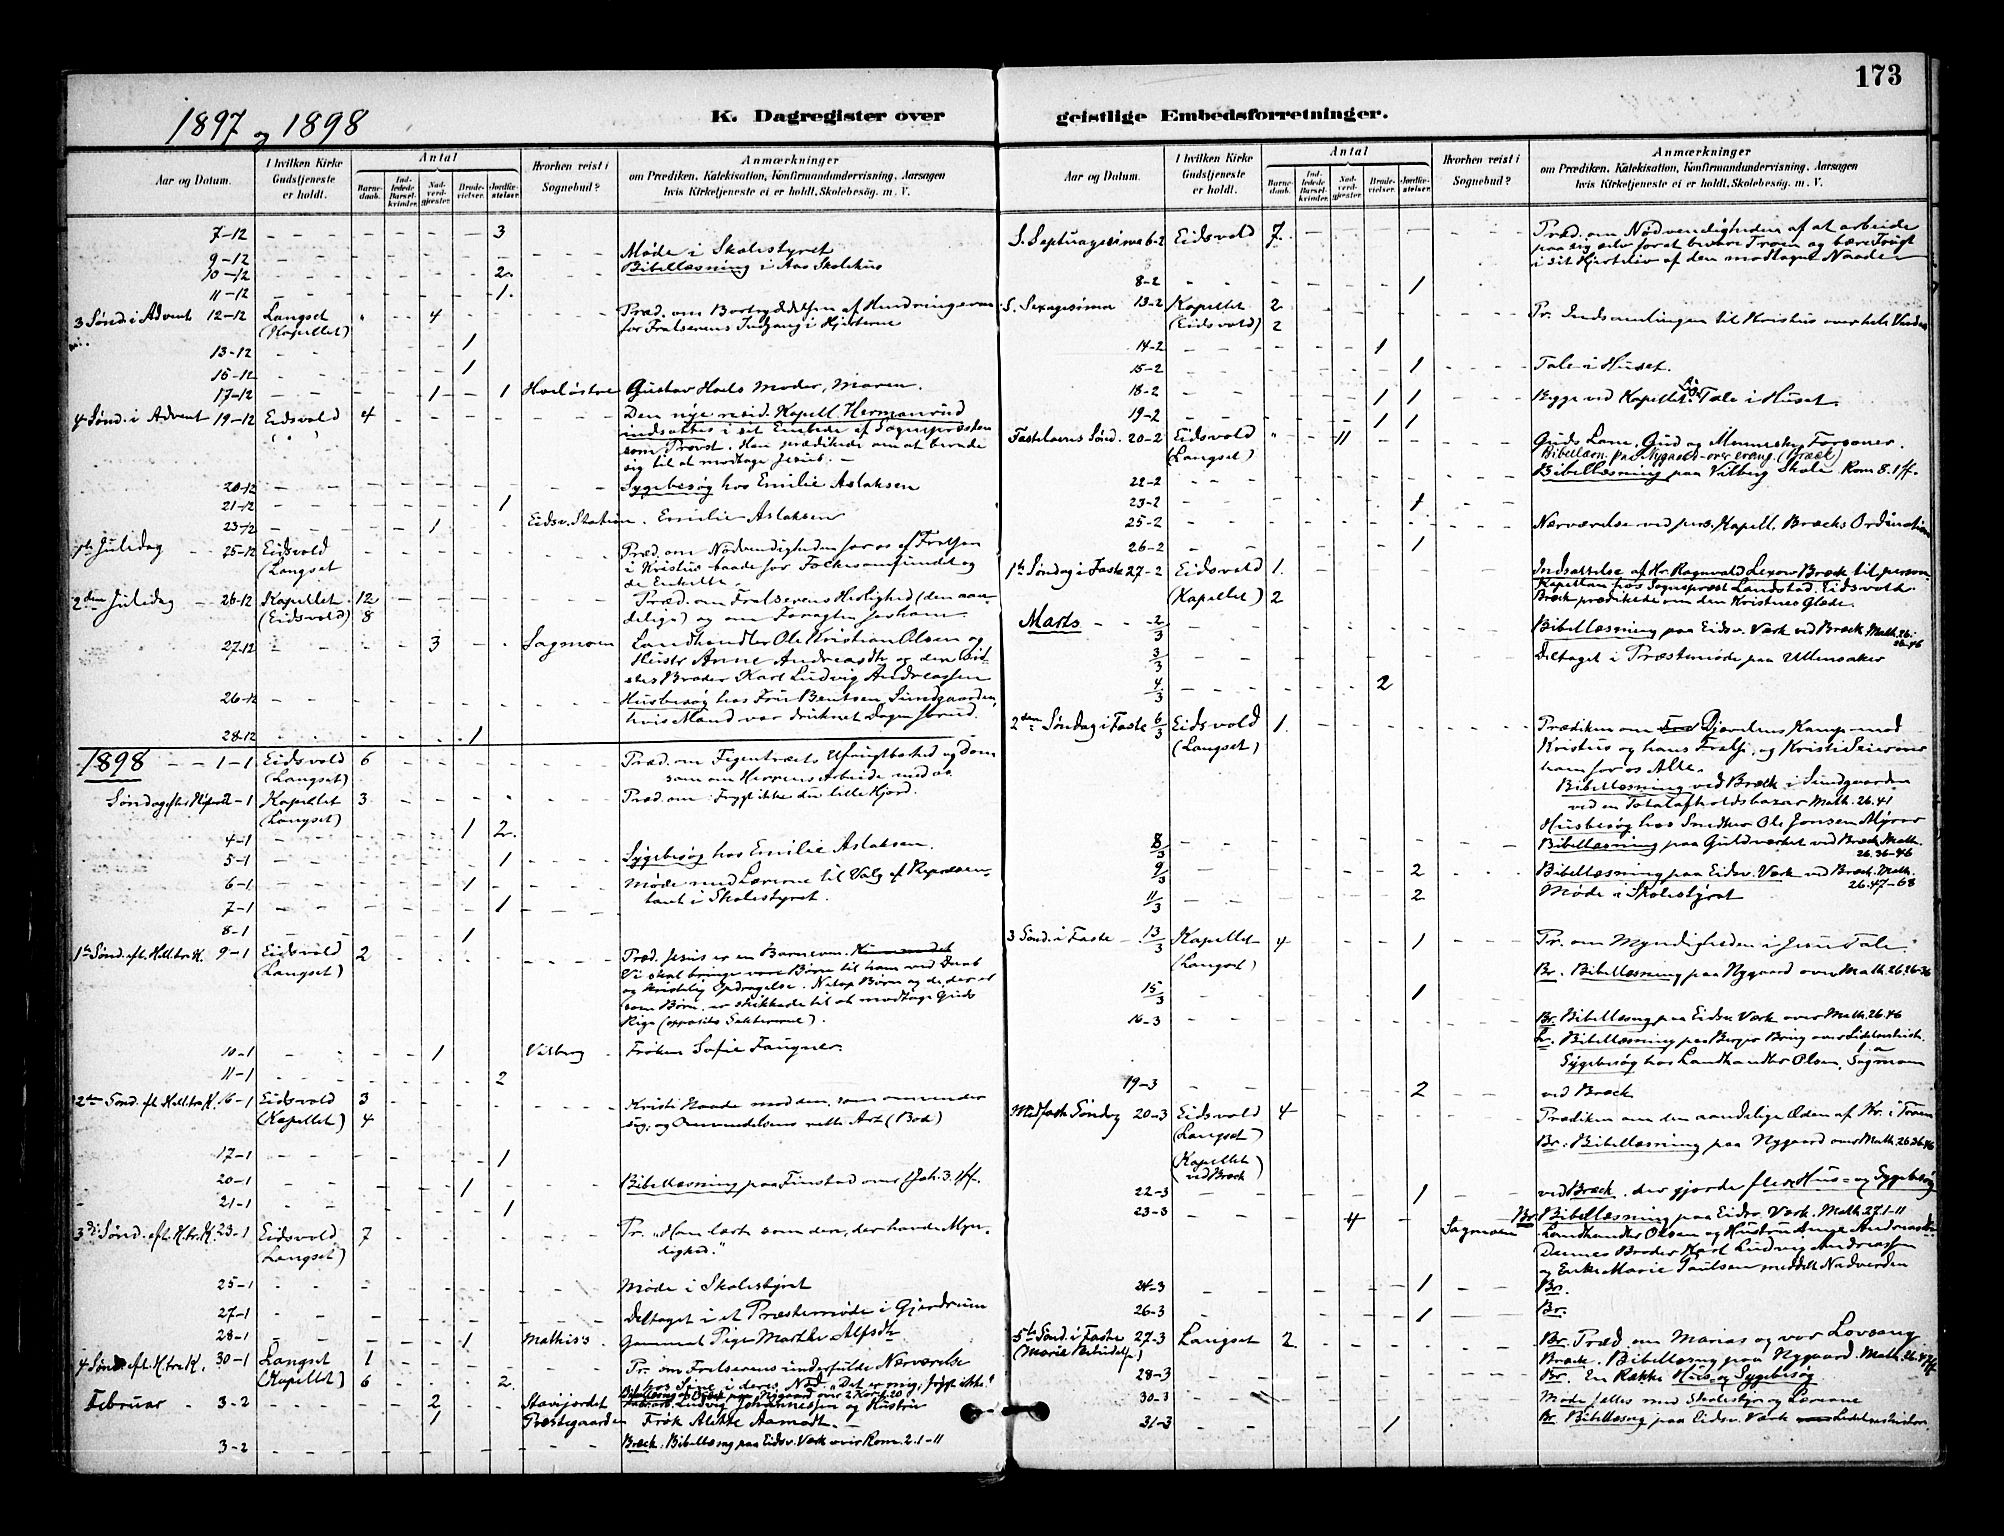 173
1897 og 1898
K. Dagregister over geistlige Embedsforretninger.
Aar og Datum.
I hvilken Kirke Gudstjeneste er holdt.
Antal
Barnedaab.
Indledede Barselkvinder.
Nadverdgjester.
Brudevielser.
Jordfæstelser.
Hvorhen reist i Sognebud?
Anmærkninger
om Prædiken, Katekisation, Konfirmandundervisning, Aarsagen
hvis Kirketjeneste ei er holdt, Skolebesøg, m. V.
7-12 3
9-12 Møde i Skolestyret
10-12 2. Bibellæsning i Aas Skolehus
11-12 1.
3 Sønd. i Advent 12-12 Langset 4 Præd. om Bortryddelsen af Hindringerne
(Kapellet) for Frelserens Indgang i Hjerterne
13-12 1
15-12 1
17-12 1 1 Gustav Hoels Moder, Maren.
4 Sønd. i Advent 19-12 Eidsvold 4 Den nye resid. Kapell. Hermanrud
indsattes i sit Embede af Sognepræsten
som Provst. Han prædikede om at berede
sig til at modtage Jesus. –
20-12 Sygebesøg hos Emilie Aslaksen
21-12 1
23-12 1 Eidsv. Station. Emilie Aslaksen
1ste Juledag 25-12 Eidsvold Præd. om Nødvendigheden for os af Frelsen
(Langset i Kristus baade for Folkesamfundet og
de Enkelte.
2den Juledag 26-12 Kapellet 12 Præd. om Frelserens Herlighed (den aan-
(Eidsvold) 8 delige) og om
27-12 3 Sagmoen Landhandler Ole Kristian Olsen og
Hustr Anne Andreasdtr og den
Broder Karl Ludvig Andreassen
26-12 Husbesøg hos Fru Bentsen Sundgaarden,
hvis Mand var druknet Dagen forud.
28-12 1
1898 1-1 Eidsvold 6 Præd. om Figentræets Ufrugtbarhed og Dom
(Langset) samt om Herrens Arbeide med os.
2-1 Kapellet 3 Præd. om: Frygt ikke du lille Hjord.
(Langset)
4-1 1 2.
5-1 1 Sygebesøg hos Emilie Aslaksen.
6-1 1 Møde med Lærerne til Valg af Repræsen-
7-1 1 tant i Skolestyret.
8-1 1
1ste Sønd. eft. Hell.tr.K. 9-1 Eidsvold 2 Præd. Jesus er en Barneven.
(Langset) Vi skal bringe vore Børn til ham ved Daab
og kristelig Opdragelse. Netop Børn og de, der er
som Børn, er skikkede til at modtage Guds
Rige
10-1 1 Vilberg Frøken Sofie Fougner.
11-1 2
2den Sønd. eft. Hell.tr.K. 16-1 Eidsvold 3 Kristi Naade mod den, som omvender
(Kapellet) 4 sig, og Omvendelsens rette Art (Bod)
17-1 1
20-1 1 Bibellæsning paa Finstad over Joh. 3. 1 ff.
21-1 1
3die Sønd. eft. H.tr.K. 23-1 Eidsvold 7 Pr. „Han lærte som den, der havde Myn-
(Langset) dighed.“
25-1 Møde i Skolestyret
27-1 Deltaget i et Præstemøde i Gjerdrum
28-1 1 Mathis's Gammel Pige Marthe Alfsdtr
4 Sønd. eft. H.tr.K. 30-1 Langset 1 Pr. om Frelserens underfulde Nærværelse
(Kapellet) 6 2. hos Sine i deres Nød. „Det er mig, frygt ikke!“
Februar 3-2 2 Ludvig Johannessen og Hustru
1 Præstegaarden Frøk Aamodt. –
3-2 Bræck. Bibellæsng paa Eidsv. Værk over Rom. 2. 1-11
S. Septuagesima 6-2 Eidsvold 7. Præd. om Nødvendigheden af at arbeide
paa sig selv for at bevare Troen og bære Frugt
i sit Hjerteliv af den modtagne Naade
8-2 1
S. Sexagesima 13-2 Kapellet 2 Pr. Indsamlingen til Kristus over hele Verden
(Eidsvold) 2
14-2 1
15-2 1 Tale i Huset.
18-2 1 1 Begge ved Kapellet. Tale i Huset.
19-2 1 1
Fastelavns Sønd. 20-2 Eidsvold 11 Guds Lam, Gud og Menneske, Forsoner.
(Langset) Bibellæsn. paa Nygaard (Bræck)
22-2 Bibellæsning paa Vilberg Skole. Rom 8. 1 ff.
23-2 1
25-2 Nærværelse ved pers. Kapell. Bræcks Ordination
26-2 1
1ste Søndag i Faste 27-2 Eidsvold 1. Indsættelse af Hr. Ragnvald Bræck til person.
(Kapellet) 2 Kapellan hos Sognepræst Landstad, Eidsvold.
Bræck prædikede om den Kristnes Glæde.
Marts 2/3 Bibellæsning paa Eidsv. Værk ved Bræck Math. 26.
26-46
3/3 Deltaget i Præstemøde paa Ullensaker
4/3 2
2den Søndag i Faste 6/3 Eidsvold 1. Prædiken om Djævelens Kamp mod
(Langset) Kristus og hans Frelse, og Kristi Seier over
ham for os Alle.
Bibellæsning ved Bræck i Sundgaarden
ved en Totalafholdsbazar Math. 26. 41
Husbesøg hos Snedker Ole Jensen Myrer
8/3 Bibellæsning paa Guldverket ved Bræck Math.
26. 36-46
9/3 2 Bibellæsning paa Eidsv. Værk ved Bræck. Math.
26. 47-68
11/3 2 Møde i Skolestyret
3 Sønd. i Faste 13/3 Kapellet 4 1 Pr. om Myndigheden i Jesu Tale
(Langset) Br. Bibellæsning paa Nygaard over Math. 26. 26-36
15/3 1
16-3 Br. Bibellæsng paa Eidsv. Værk over Math. 26. 46
L. Bibellæsning paa
Sygebesøg hos Landhandler Olsen, Sagmoen
19-3 2 ved Bræck
Midfaste Søndag 20-3 Eidsvold 4 Prædiken om den aandelige Æden af Kr. i Troen
(Langset) Br. Bibellæsning paa Nygaard over Math. 26 36-46
(Kapellet ved Bræck)
22-3 1 ved Bræck, der gjorde flere Hus- og Sygebesøg
23-3 4 Sagmoen Br. Bibellæsning paa Eidsv. Værk. Math. 27. 1-11
Landhandler Olsen og Hustru Anne Andreasdtr.
Dennes Broder Karl Ludvig Andreassen
og Enke Marie Paulsen meddelt Nadverden
24-3 1 Br.
26-3 1 Br.
5te Sønd. i Faste 27-3 Langset 2. Br. Præd. om Marias og vor Lovsang
(Mariæ Bebudelse) Bræck. Bibellæsng paa Nygaard. Math. 26. 47 ff
28-3 Br. En Række Hus og Sygebesøg
30-3 Møde fælles med Skolestyr og Lærerne
31-3 1 Br. Bibellæsng paa Eidsv. Værk